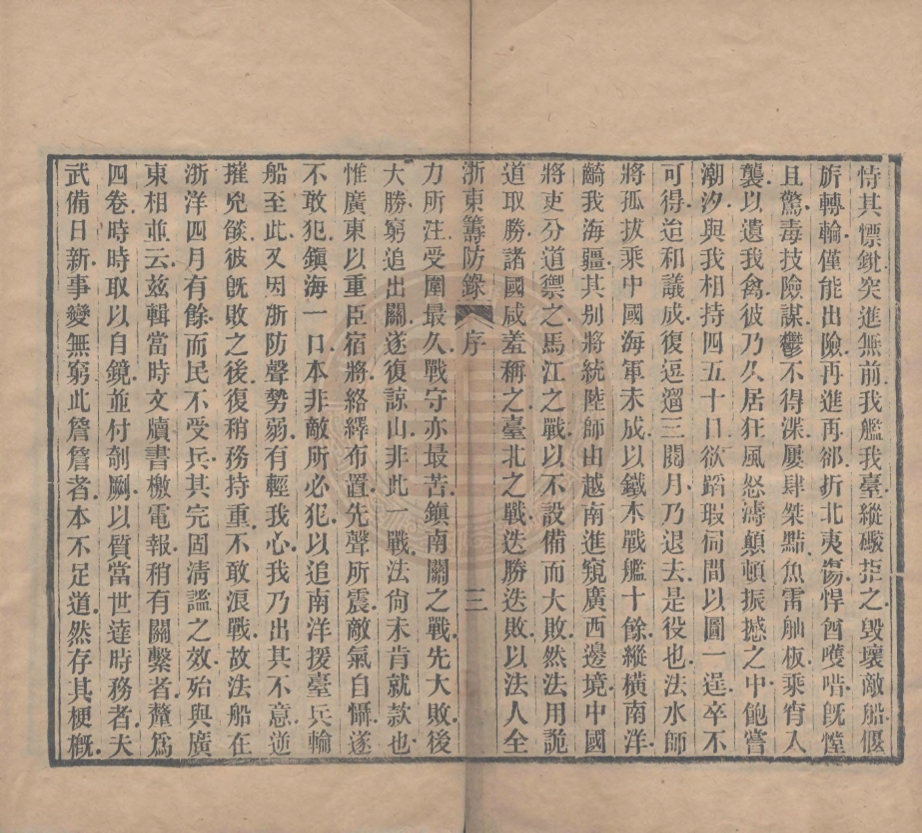 恃其慓銳突進無前我艦我臺縱礮拒之毀壞敵船偃
旂轉輪僅能出險再進再郤折北夷傷悍酋嚄唶既憆
且驚毒技險謀鬱不得渫屢肆桀黠魚雷舢板乘宵入
襲以遺我禽彼乃久居狂風怒濤顛頓振撼之中飽嘗
潮汐與我相持四五十日欲蹈瑕伺間以圖一逞卒不
可得迨和議成復逗遛三閱月乃退去是役也法水師
將孤拔乘中國海軍未成以鐵木戰艦十餘縱橫南洋
齮我海疆其別將統陸師由越南進窺廣西邊境中國
將吏分道禦之馬江之戰以不設備而大敗然法用詭
道取勝諸國咸羞稱之臺北之戰迭勝迭敗以法人全
浙東籌防錄 序 三
力所注受圍最久戰守亦最苦鎮南關之戰先大敗後
大勝窮追出關遂復諒山非此一戰法尙未肯就款也
惟廣東以重臣宿將絡繹布置先聲所震敵氣自懾遂
不敢犯鎮海一口本非敵所必犯以追南洋援臺兵輪
船至此又因浙防聲勢弱有輕我心我乃出其不意逆
摧兇燄彼旣敗之後復稍務持重不敢浪戰故法船在
浙洋四月有餘而民不受兵其完固淸謐之效殆與廣
東相並云茲輯當時文牘書檄電報稍有關繫者釐爲
四卷時時取以自鏡並付剞劂以質當世達時務者夫
武備日新事變無窮此詹詹者本不足道然存其梗概